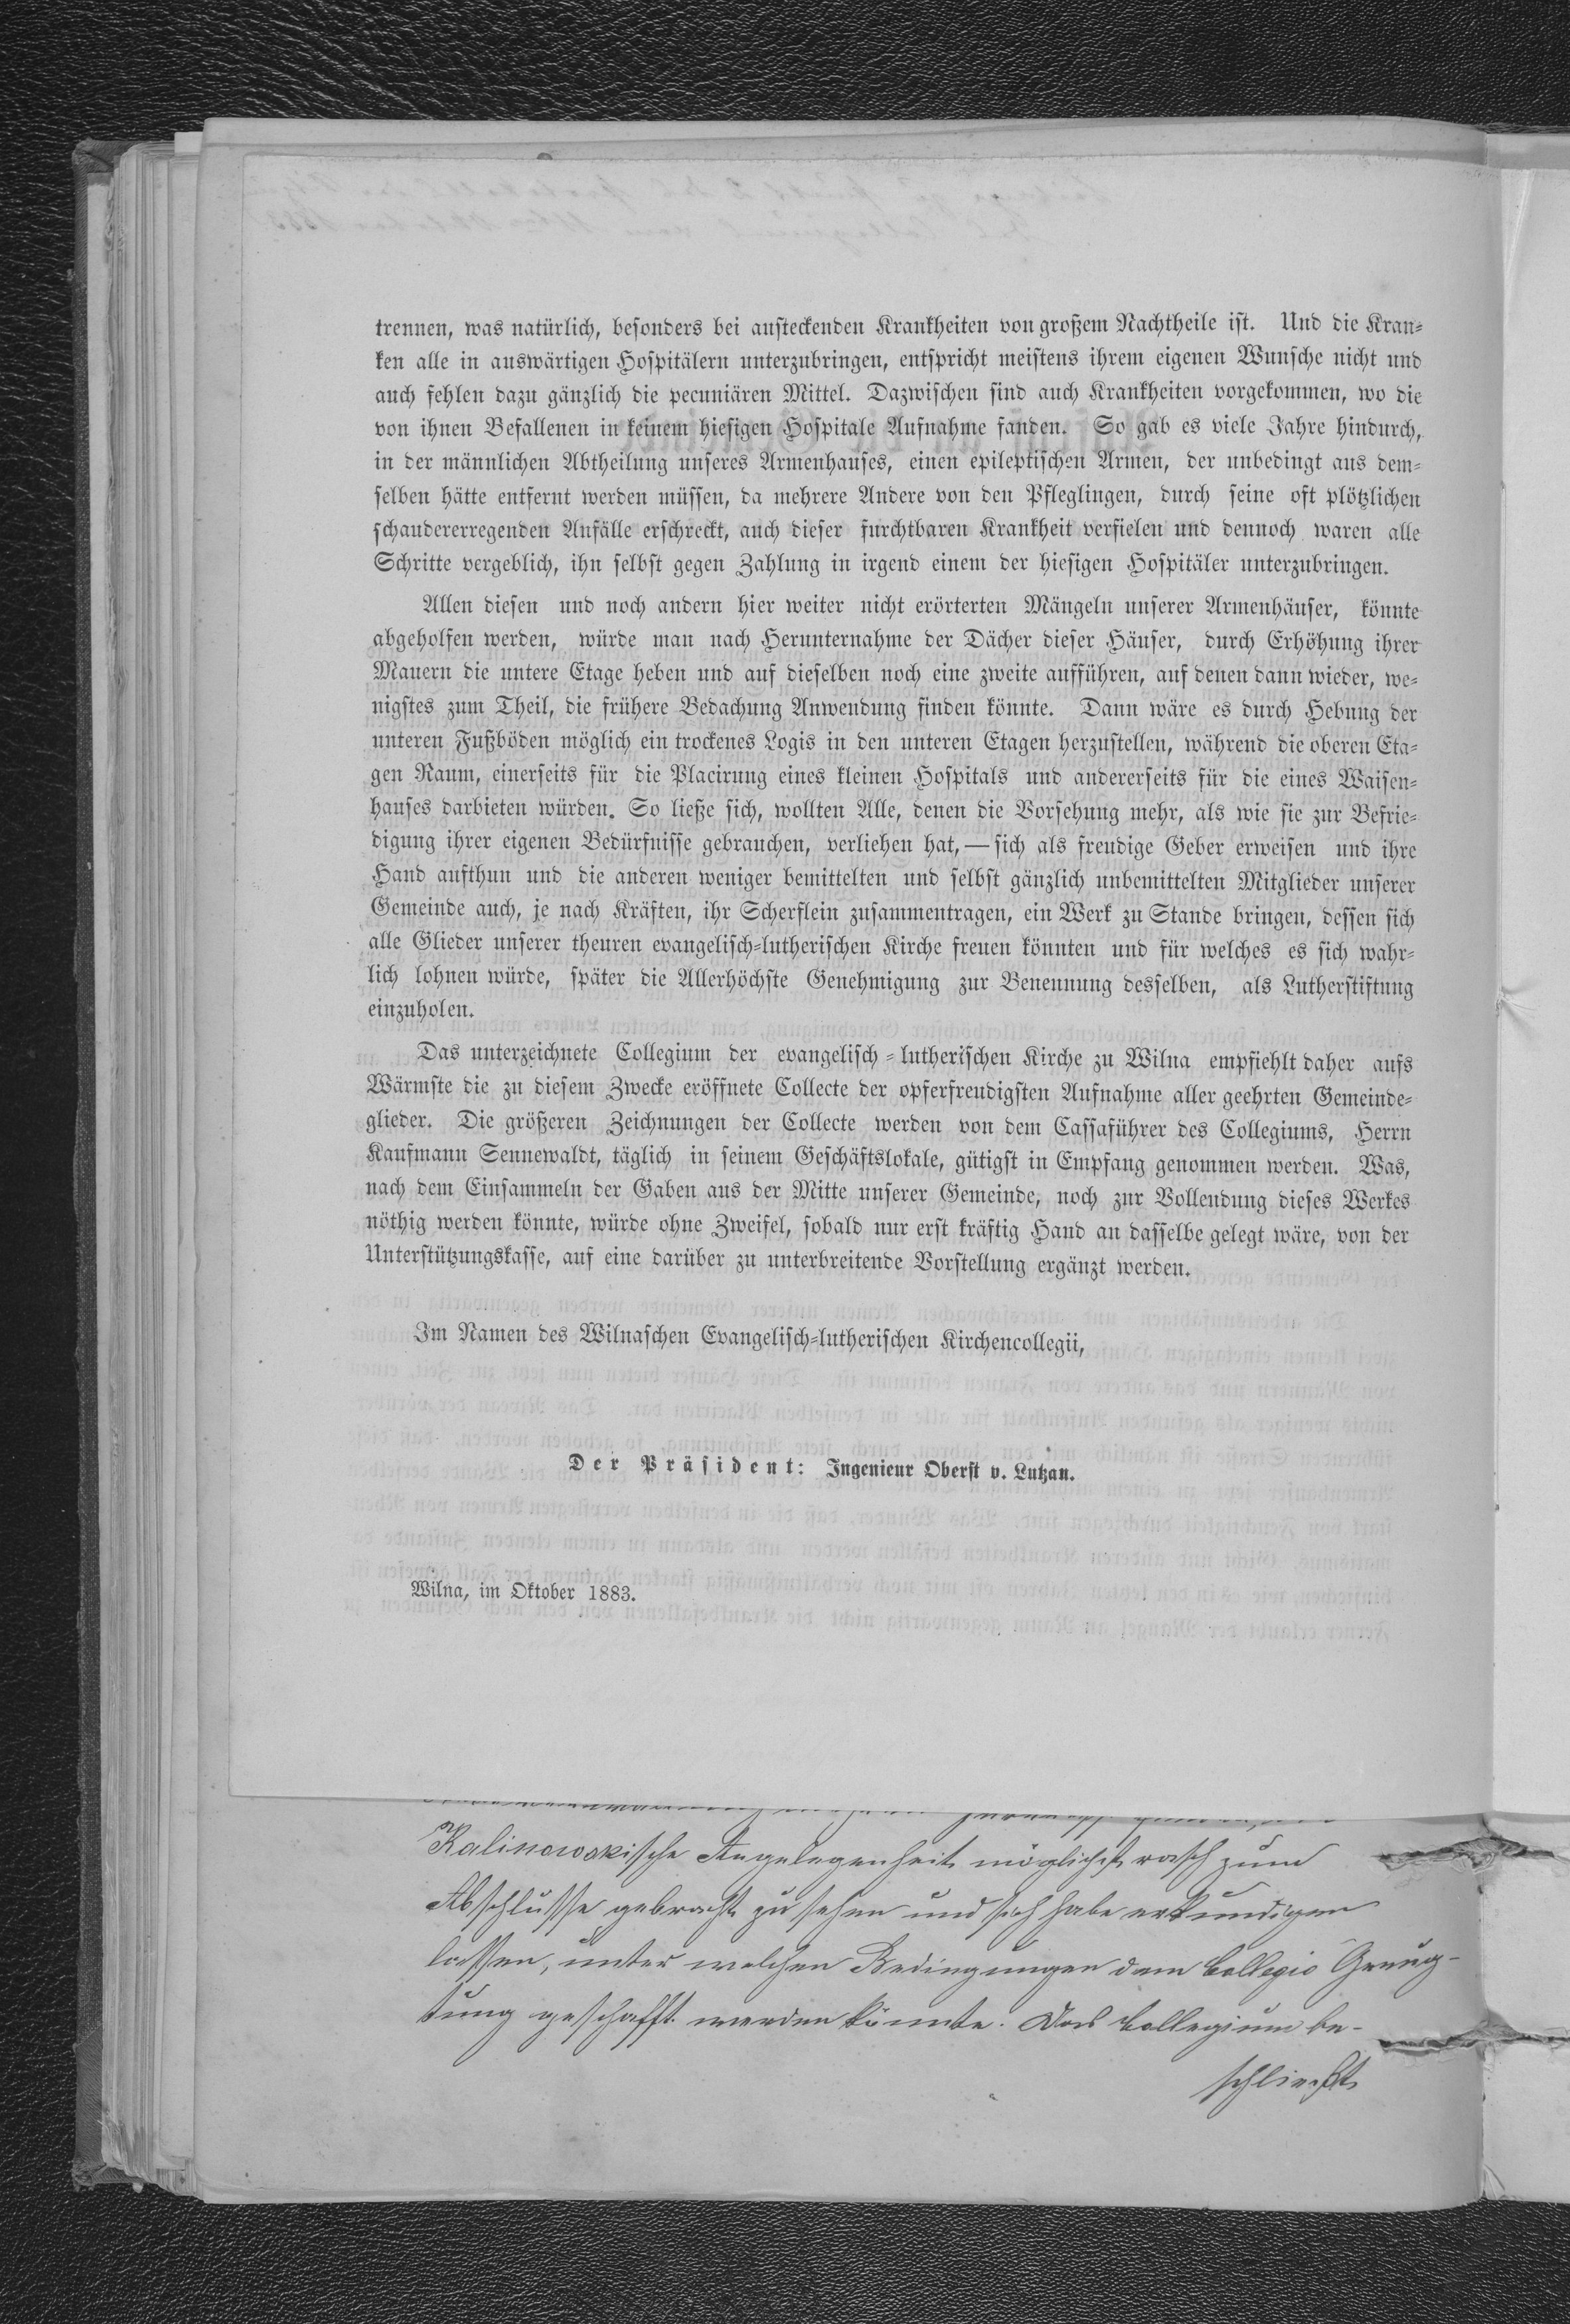 trennen, was natürlich, besonders bei ansteckenden Krankheiten von großem Nachtheile ist. Und die Kran-
ken alle in auswärtigen Hospitälern unterzubringen, entspricht meistens ihrem eigenen Wunsche nicht und
auch fehlen dazu gänzlich die pecuniären Mittel. Dazwischen sind auch Krankheiten vorgekommen, wo die
von ihnen Befallenen in keinem hiesigen Hospitale Aufnahme fanden. So gab es viele Jahre hindurch,
in der männlichen Abtheilung unseres Armenhauses, einen epileptischen Armen, der unbedingt aus dem-
selben hätte entfernt werden müssen, da mehrere Andere von den Pfleglingen, durch seine oft plötzlichen
schaudererregenden Anfälle erschreckt, auch dieser furchtbaren Krankheit verfielen und dennoch waren alle
Schritte vergeblich, ihn selbst gegen Zahlung in irgend einem der hiesigen Hospitäler unterzubringen.
Allen diesen und noch andern hier weiter nicht erörterten Mängeln unserer Armenhäuser, könnte
abgeholfen werden, würde man nach Herunternahme der Dächer dieser Häuser, durch Erhöhung ihrer
Mauern die untere Etage heben und auf dieselben noch eine zweite aufführen, auf denen dann wieder, we-
nigstes zum Theil, die frühere Bedachung Anwendung finden könnte. Dann wäre es durch Hebung der
unteren Fußböden möglich ein trockenes Logis in den unteren Etagen herzustellen, während die oberen Eta-
gen Raum, einerseits für die Placirung eines kleinen Hospitals und andererseits für die eines Waisen-
hauses darbieten würden. So ließe sich, wollten Alle, denen die Vorsehung mehr, als wie sie zur Befrie-
digung ihrer eigenen Bedürfnisse gebrauchen, verliehen hat, — sich als freudige Geber erweisen und ihre
Hand aufthun und die anderen weniger bemittelten und selbst gänzlich unbemittelten Mitglieder unserer
Gemeinde auch, je nach Kräften, ihr Scherflein zusammentragen, ein Werk zu Stande bringen, dessen sich
alle Glieder unserer theuren evangelisch-lutherischen Kirche freuen könnten und für welches es sich wahr-
lich lohnen würde, später die Allerhöchste Genehmigung zur Benennung desselben, als Lutherstiftung
einzuholen.
Das unterzeichnete Collegium der evangelisch-lutherischen Kirche zu Wilna empfiehlt daher aufs
Wärmste die zu diesem Zwecke eröffnete Collecte der opferfreudigsten Aufnahme aller geehrten Gemeinde-
glieder. Die größeren Zeichnungen der Collecte werden von dem Cassaführer des Collegiums, Herrn
Kaufmann Sennewaldt, täglich in seinem Geschäftslokale, gütigst in Empfang genommen werden. Was,
nach dem Einsammeln der Gaben aus der Mitte unserer Gemeinde, noch zur Vollendung dieses Werkes
nöthig werden könnte, würde ohne Zweifel, sobald nur erst kräftig Hand an dasselbe gelegt wäre, von der
Unterstützungskasse, auf eine darüber zu unterbreitende Vorstellung ergänzt werden.
Im Namen des Wilnaschen Evangelisch-lutherischen Kirchencollegii,
Der Präsident: Ingenieur Oberst v. Lutzau.
Wilna, im Oktober 1883.
Kalinowskische Angelegenheit möglichst rasch zum
Abschlusse gebracht zu sehen und sich habe erkundigen
lassen, unter welchen Bedingungen dem Collegio Genug-
tung geschafft werden könnte. Das Collegium be-
schließt